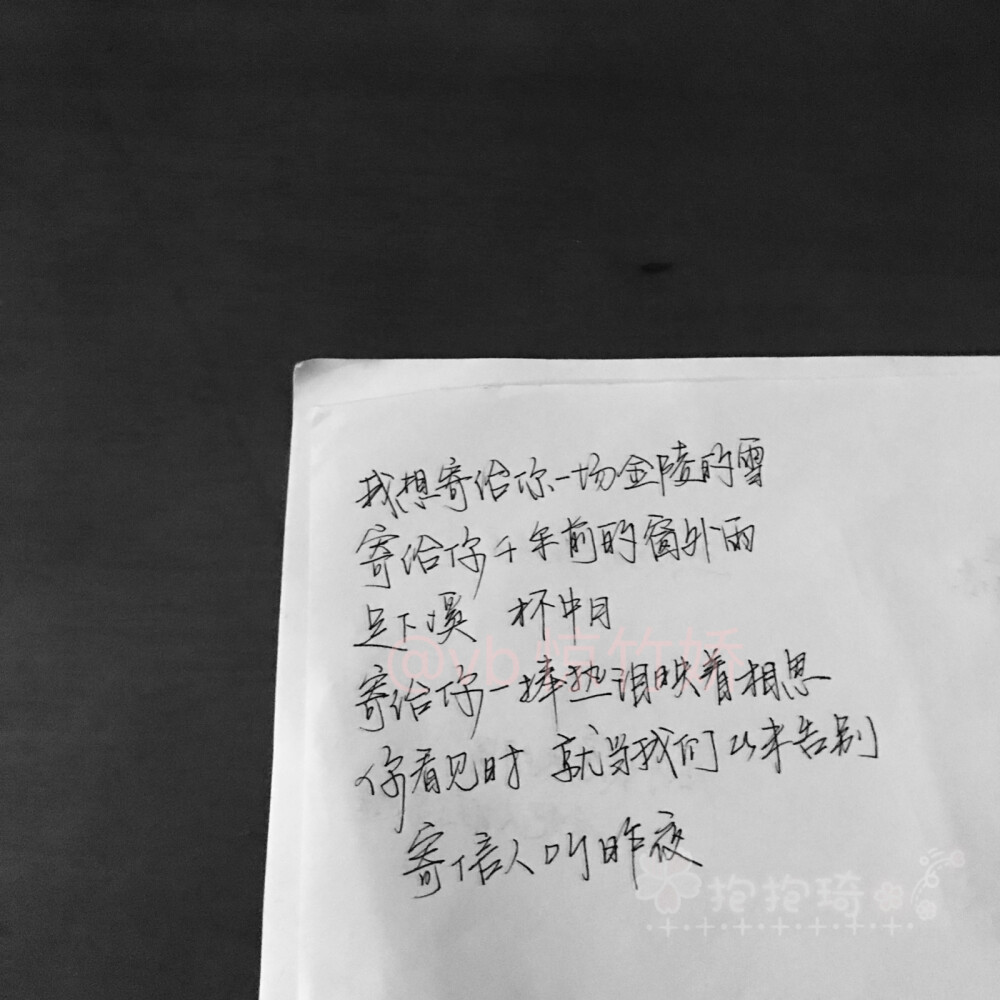 我想寄给你一场金陵的雪
寄给你千年前的窗外雨
足下溪 杯中月
寄给你一捧热泪映着相思
你看见时 就当我们以来告别
寄信人叫昨夜
抱抱琦